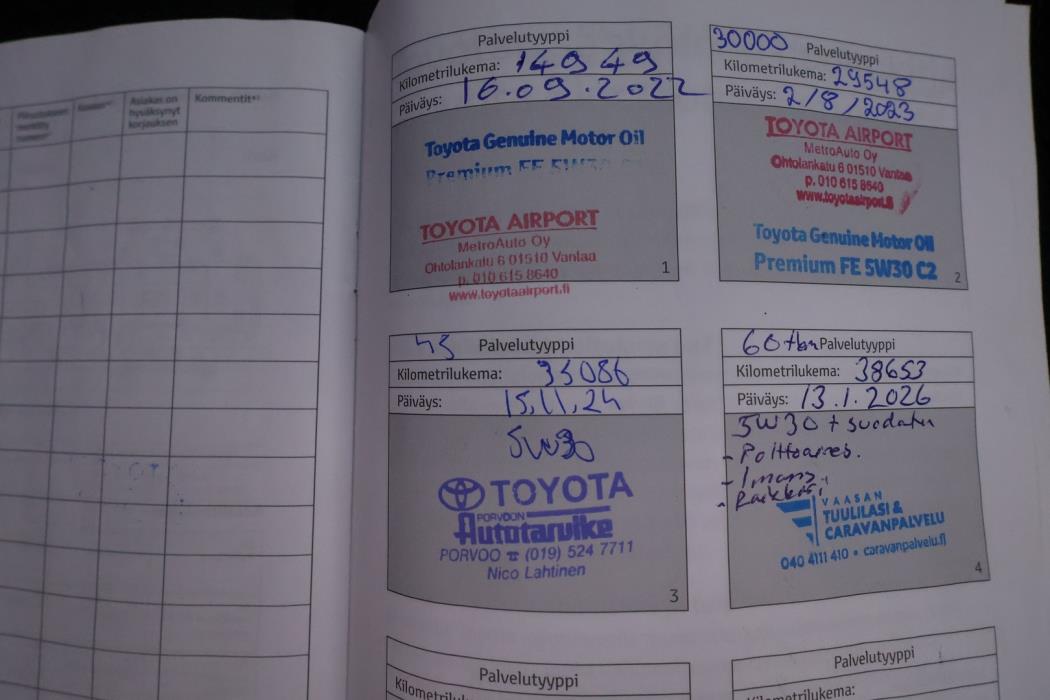 Asiakas on
hyväksynyt
korjauksen
Kommentit*)
Palvelutyyppi
Kilometrilukema: 14949
Päiväys: 16.09.2022
Toyota Genuine Motor Oil
Premium FE 5W30
TOYOTA AIRPORT
MetroAuto Oy
Ohtolankatu 6 01510 Vantaa
p. 010 615 8640
www.toyotaairport.fi
1
30000 Palvelutyyppi
Kilometrilukema: 29548
Päiväys: 2/8/2023
TOYOTA AIRPORT
MetroAuto Oy
Ohtolankatu 6 01510 Vantaa
p. 010 615 8640
www.toyotaairport.fi
Toyota Genuine Motor Oil
Premium FE 5W30 C2
2
45 Palvelutyyppi
Kilometrilukema: 35086
Päiväys: 15.11.24
5W30
TOYOTA
PORVOON
Autotarvike
PORVOO ☎ (019) 524 7711
Nico Lahtinen
3
60tkm Palvelutyyppi
Kilometrilukema: 38653
Päiväys: 13.1.2026
5W30 + suodatin
VAASAN
TUULILASI &
CARAVANPALVELU
040 4111 410 • caravanpalvelu.fi
4
Palvelutyyppi
Kilometrilukema:
Palvelutyyppi
Kilometrilukema: